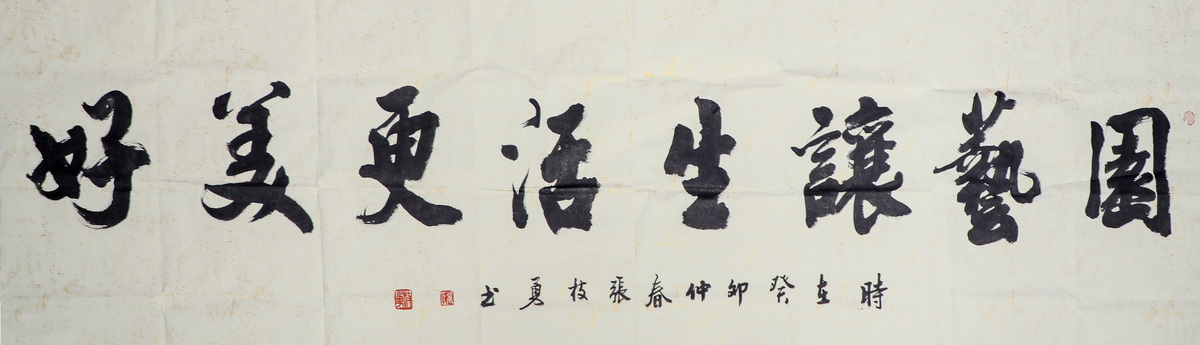 園藝讓生活更美好
時在癸卯仲春張枝勇书